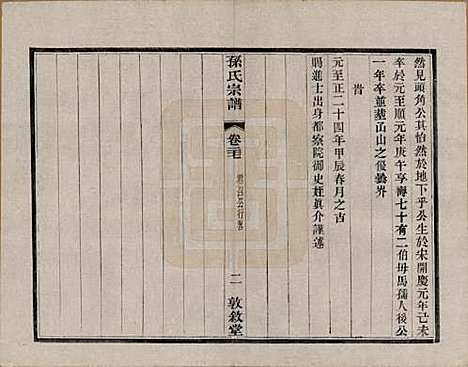 然見頭角公其怡然於地下乎公生於宋開慶元年己未
卒於元至順元年庚午享壽七十有二伯母馬孺人後公
一年卒並葬函山之優曇界
旹
元至正二十四年甲辰春月之吉
賜進士出身都察院御史姪眞介謹述
孫氏宗譜
卷三
公行畧
二
敦敘堂